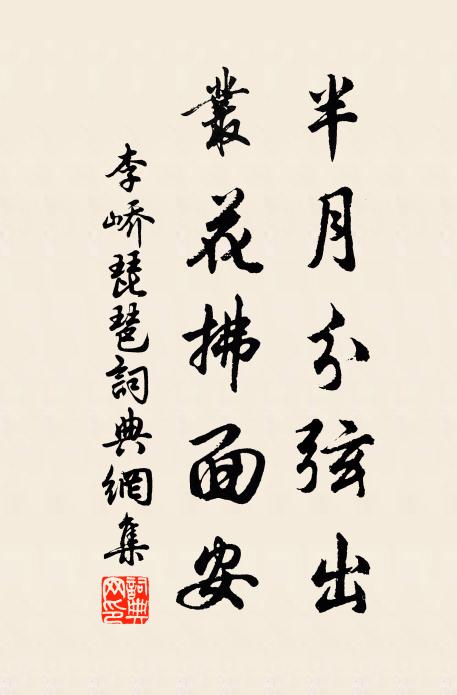 半月分弦出
叢花拂面安
李嶠琵琶詞典網集
詞典网印